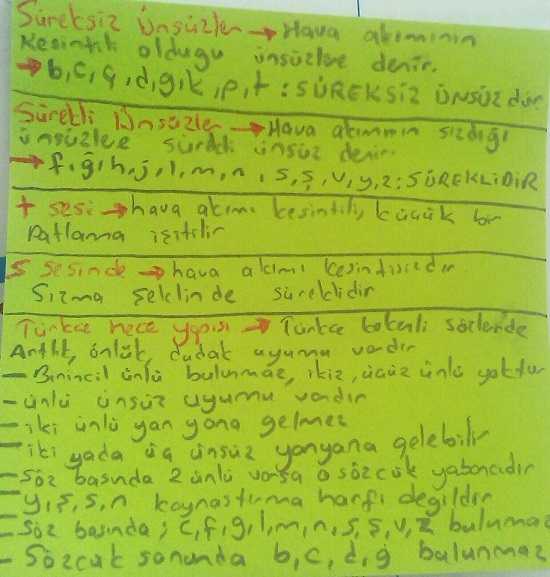 Süreksiz Ünsüzler → Hava akımının
Kesintili olduğu ünsüzlere denir.
→ b, c, ç, d, g, k, p, t : SÜREKSİZ ÜNSÜZ dür
Sürekli Ünsüzler → Hava akımının sızdığı
ünsüzlere sürekli ünsüz denir.
→ f, ğ, h, j, l, m, n, s, ş, v, y, z : SÜREKLİDİR
t sesi → hava akımı kesintili, küçük bir
Patlama işitilir
s sesinde → hava akımı kesintisizdir
Sızma şeklinde süreklidir
Türkçe hece yapısı → Türkçe kökenli sözlerde
Artlık, önlük, dudak uyumu vardır
- Birincil ünlü bulunmaz, ikiz, üçüz ünlü yoktur
- ünlü ünsüz uyumu vardır
- iki ünlü yan yana gelmez
- iki yada üç ünsüz yanyana gelebilir
- Söz başında 2 ünlü varsa o sözcük yabancıdır
- y, ş, s, n kaynaştırma harfi değildir
- Söz başında ; c, f, ğ, l, m, n, s, ş, v, z bulunmaz
- Sözcük sonunda b, c, d, g bulunmaz